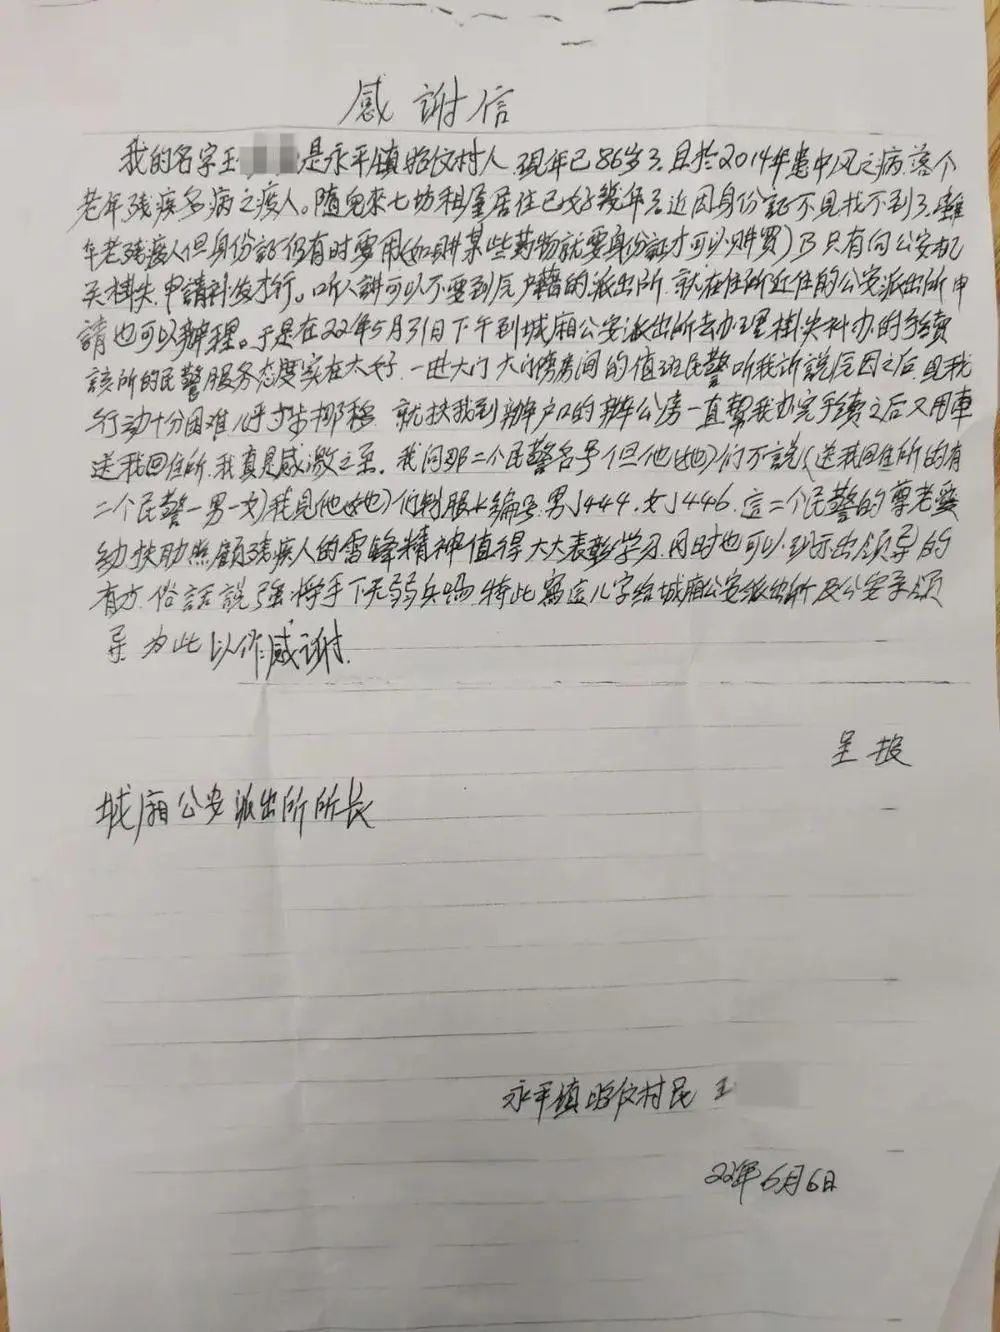 感谢信
我的名字王 是永平镇昭仪村人,现年已86岁了,且於2014年患中风之病,落个
老年残疾多病之疫人。随儿來七坊租屋居住已好幾年了,近因身份証不見找不到了,雖
年老残疾人但身份証仍有时需用(如購某些药物就要身份証才可以购買)乃只有向公安机
关掛失,申請补发才行。听人講可以不要到原户籍的派出所,就在住所近住的公安派出所申
請也可以辦理。于是在22年5月31日下午到城厢公安派出所去办理掛失补办的手續
該所的民警服务态度实在太好,一进大门大门傍房间的值班民警听我訴說原因之后,見我
行动十分困难几乎寸步挪移,就扶我到辦户口的辦公房一直幫我办完手續之后又用車
送我回住所,我真是感激之至。我问那二个民警名号但他(她)们不說(送我回住所的有
二个民警一男一女)我見他(她)们制服上编号,男J444,女J446,這二个民警的尊老愛
幼扶助照顧残疾人的雷鋒精神值得大大表彰学习,同时也可以现示出领导的
有方,俗話説強将手下无弱兵嗎,特此寫這几字给城厢公安派出所及公安系领
导,为此以作感谢.
呈报
城厢公安派出所所长
永平镇昭仪村民 王
22年6月6日